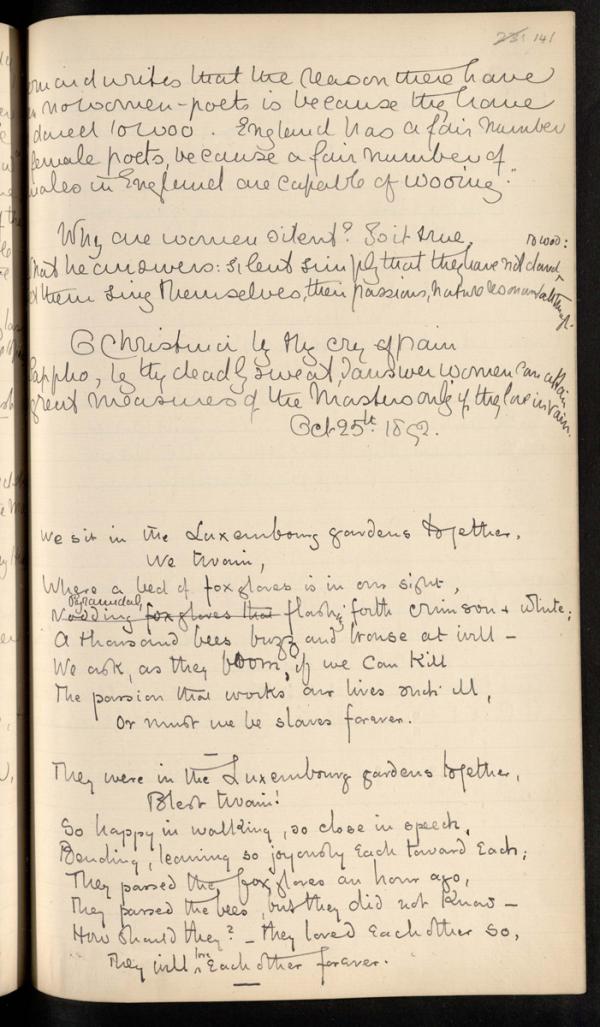 231 141
and writes that the reason there have
no women-poets is because they have
dared to woo. England has a fair number
female poets, because a fair number of
males in England are capable of wooing."
Why are women silent? So it true,
to woo:
that he answers: silent simply that they have not dared
them sing themselves, their passions, nature
O Christina by thy cry of pain
Sappho, by thy deadly sweat, I answer women can attain
great measures of the Masters only if they love in vain.
Oct 25th. 1892.
We sit in the Luxembourg gardens together,
We twain,
Where a bed of foxgloves is in our sight,
Pyramidal,
Nodding foxgloves that flashing forth crimson + white;
A thousand bees buzz and browse at will –
We ask, as they boom, if we can kill
The passion that works our lives such ill,
Or must we be slaves forever.
They were in the Luxembourg gardens together,
Blest twain!
So happy in walking, so close in speech,
Bending, leaning so joyously each toward each;
They passed the foxgloves an hour ago,
They passed the bees, but they did not know –
How should they? – They loved each other so,
They will love each other forever.